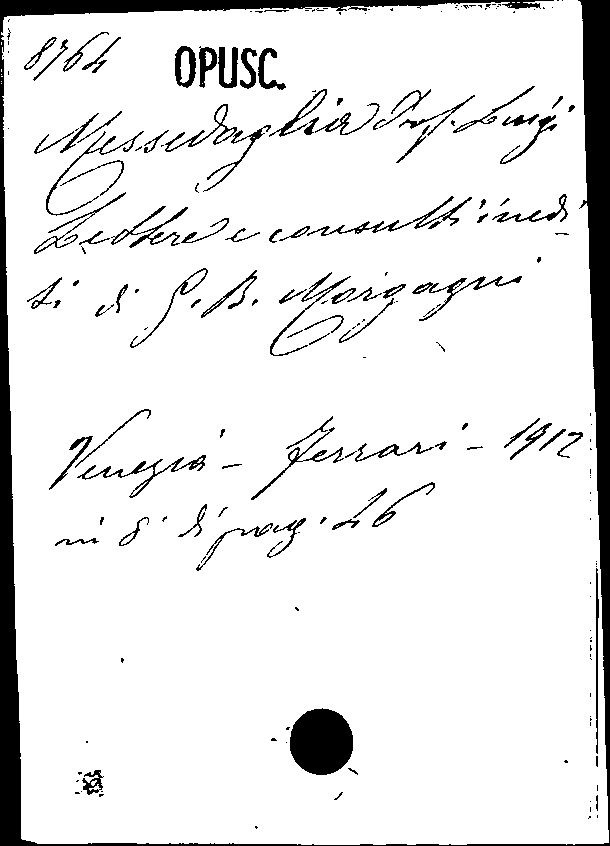 8764 OPUSC.
Messedaglia Prof. Luigi
Lettere e consulti inedi-
ti di G. B. Morgagni
Venezia - Ferrari - 1912
in 8° di pag. 26